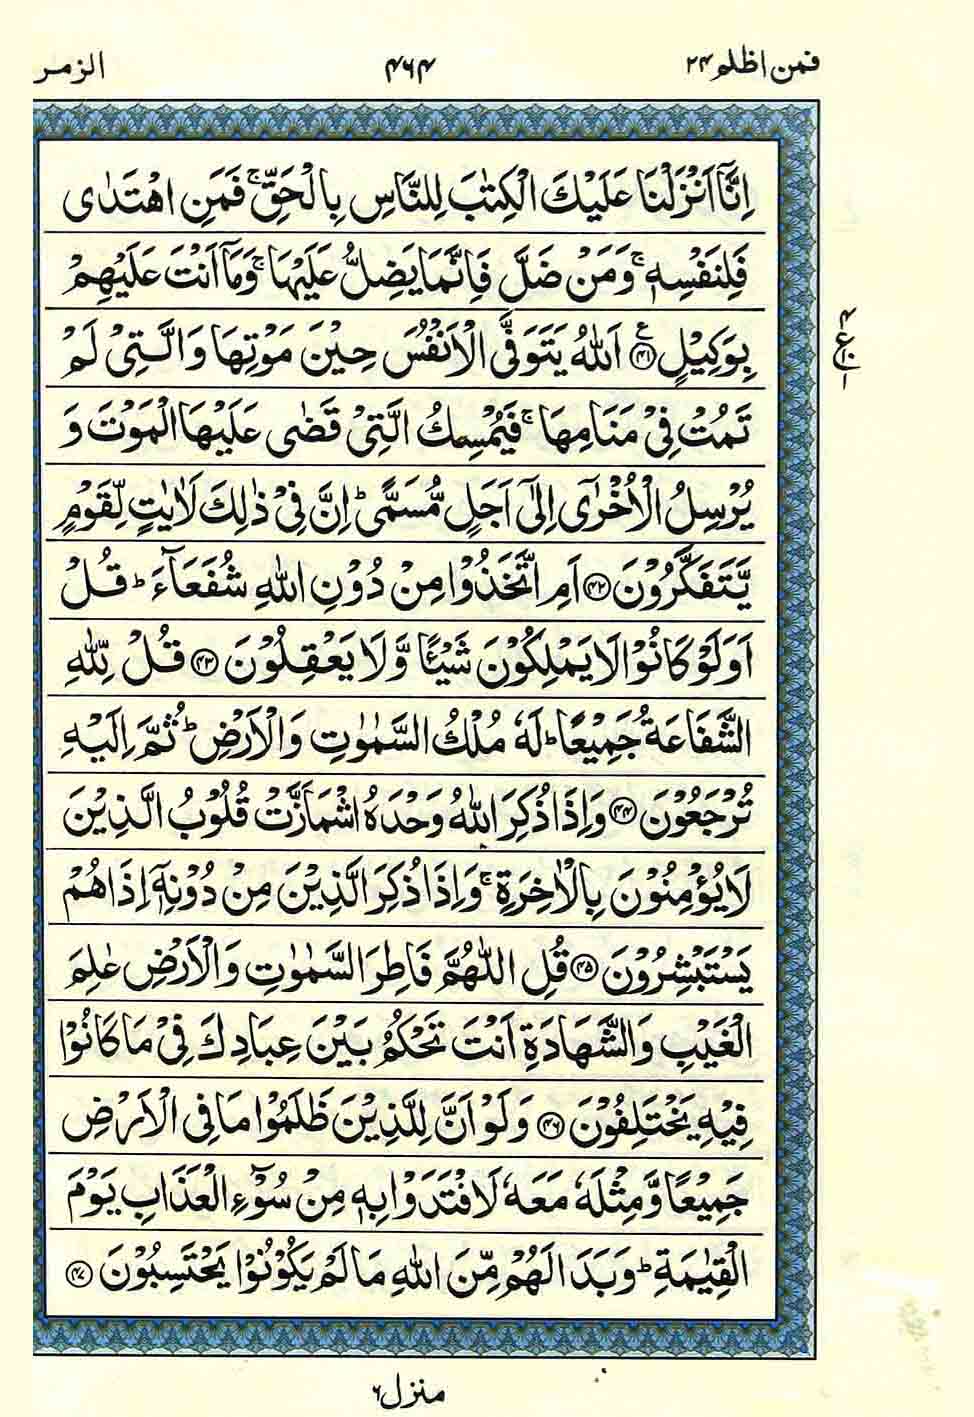 فمن اظلم ۲۴
۴۶۴
الزمر
اِنَّاۤ اَنْزَلْنَا عَلَيْكَ الْكِتٰبَ لِلنَّاسِ بِالْحَقِّ ۚ فَمَنِ اهْتَدٰى
فَلِنَفْسِهٖ ۚ وَمَنْ ضَلَّ فَاِنَّمَا يَضِلُّ عَلَيْهَا ۚ وَمَاۤ اَنْتَ عَلَيْهِمْ
بِوَكِيْلٍ ۴۱ ع اَللّٰهُ يَتَوَفَّى الْاَنْفُسَ حِيْنَ مَوْتِهَا وَالَّتِىْ لَمْ
تَمُتْ فِىْ مَنَامِهَا ۚ فَيُمْسِكُ الَّتِىْ قَضٰى عَلَيْهَا الْمَوْتَ وَ
يُرْسِلُ الْاُخْرٰۤى اِلٰۤى اَجَلٍ مُّسَمًّى ؕ اِنَّ فِىْ ذٰلِكَ لَاٰيٰتٍ لِّقَوْمٍ
يَّتَفَكَّرُوْنَ ۴۲ اَمِ اتَّخَذُوْا مِنْ دُوْنِ اللّٰهِ شُفَعَآءَ ؕ قُلْ
اَوَلَوْ كَانُوْا لَا يَمْلِكُوْنَ شَيْـًٔا وَّلَا يَعْقِلُوْنَ ۴۳ قُلْ لِّلّٰهِ
الشَّفَاعَةُ جَمِيْعًا ؕ لَهٗ مُلْكُ السَّمٰوٰتِ وَالْاَرْضِ ؕ ثُمَّ اِلَيْهِ
تُرْجَعُوْنَ ۴۴ وَاِذَا ذُكِرَ اللّٰهُ وَحْدَهُ اشْمَاَزَّتْ قُلُوْبُ الَّذِيْنَ
لَا يُؤْمِنُوْنَ بِالْاٰخِرَةِ ۚ وَاِذَا ذُكِرَ الَّذِيْنَ مِنْ دُوْنِهٖۤ اِذَا هُمْ
يَسْتَبْشِرُوْنَ ۴۵ قُلِ اللّٰهُمَّ فَاطِرَ السَّمٰوٰتِ وَالْاَرْضِ عٰلِمَ
الْغَيْبِ وَالشَّهَادَةِ اَنْتَ تَحْكُمُ بَيْنَ عِبَادِكَ فِىْ مَا كَانُوْا
فِيْهِ يَخْتَلِفُوْنَ ۴۶ وَلَوْ اَنَّ لِلَّذِيْنَ ظَلَمُوْا مَا فِى الْاَرْضِ
جَمِيْعًا وَّمِثْلَهٗ مَعَهٗ لَافْتَدَوْا بِهٖ مِنْ سُوْٓءِ الْعَذَابِ يَوْمَ
الْقِيٰمَةِ ؕ وَبَدَا لَهُمْ مِّنَ اللّٰهِ مَا لَمْ يَكُوْنُوْا يَحْتَسِبُوْنَ ۴۷
۴
ع۱۰
۱
منزل ۶